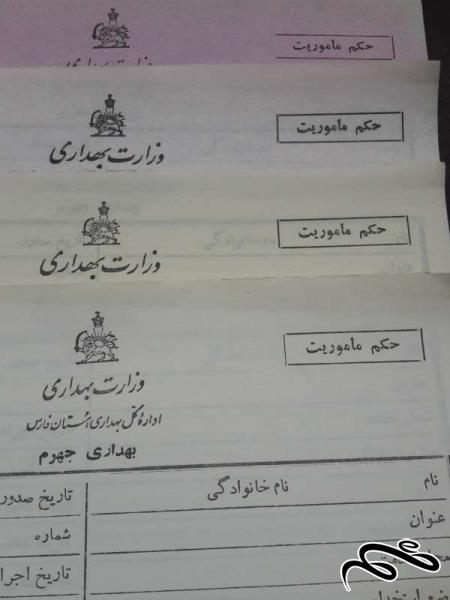 حکم ماموریت
وزارت بهداری
حکم ماموریت
وزارت بهداری
حکم ماموریت
وزارت بهداری
حکم ماموریت
وزارت بهداری
اداره کل بهداری استان فارس
بهداری جهرم
نام نام خانوادگی تاریخ صدور
عنوان
شماره
تاریخ اجرا